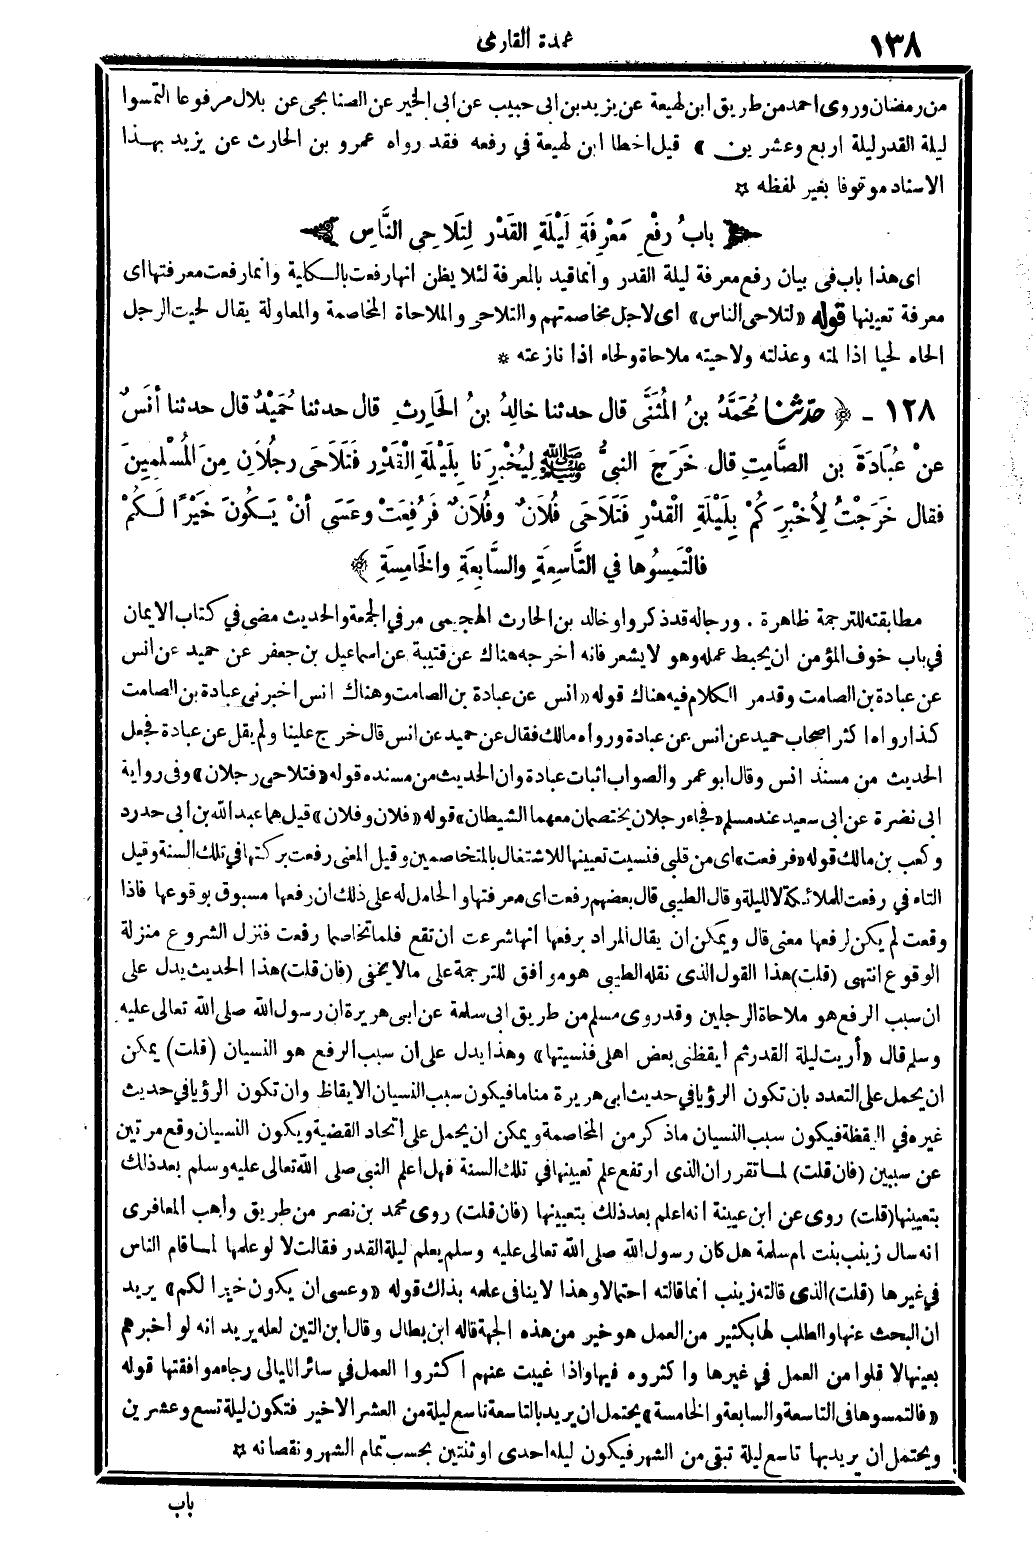 عمدة القارى
١٣٨
من رمضان وروى احمد من طريق ابن لهيعة عن يزيد بن ابى حبيب عن ابى الخير عن الصنابحى عن بلال مرفوعا التمسوا
ليلة القدر ليلة اربع وعشرين » قيل اخطا ابن لهيعة في رفعه فقد رواه عمرو بن الحارث عن يزيد بهذا
الاسناد موقوفا بغير لفظه ☆
﴿ بابُ رفْعِ مَعْرِفَةِ لَيْلَةِ القَدْرِ لِتَلَاحِى النَّاسِ ﴾
اى هذا باب فى بيان رفع معرفة ليلة القدر وانما قيد بالمعرفة لئلا يظن انها رفعت بالكلية وانما رفعت معرفتها اى
معرفة تعيينها قوله «لتلاحى الناس» اى لاجل مخاصمتهم والتلاحى والملاحاة المخاصمة والمعاولة يقال لحيت الرجل
الحاه لحيا اذا لمته وعذلته ولاحيته ملاحاة ولحاء اذا نازعته *
١٢٨ - ﴿ حدّثنا مُحَمَّدُ بنُ المُثَنَّى قال حدثنا خالِدُ بنُ الحَارِثِ قال حدثنا حُمَيْدٌ قال حدثنا أنَسٌ
عنْ عُبَادَةَ بنِ الصَّامِتِ قال خَرَجَ النبىُّ ﷺ لِيُخْبِرَنَا بِلَيْلَةِ القَدْرِ فَتَلَاحَى رجُلَانِ مِنَ المُسْلِمِينَ
فقال خَرَجْتُ لِأُخْبِرَكُمْ بِلَيْلَةِ القَدْرِ فَتَلَاحَى فُلَانٌ وفُلَانٌ فَرُفِعَتْ وعَسَى أنْ يَكُونَ خَيْرًا لَكُمْ
فالْتَمِسُوها في التَّاسِعَةِ والسَّابِعَةِ والخَامِسَةِ ﴾
مطابقته للترجمة ظاهرة . ورجاله قد ذكروا وخالد بن الحارث الهجيمى مر في الجمعة والحديث مضى في كتاب الايمان
في باب خوف المؤمن ان يحبط عمله وهو لا يشعر فانه أخرجه هناك عن قتيبة عن اسماعيل بن جعفر عن حميد عن انس
عن عبادة بن الصامت وقد مر الكلام فيه هناك قوله «انس عن عبادة بن الصامت وهناك انس اخبرنى عبادة بن الصامت
كذا رواه اكثر اصحاب حميد عن انس عن عبادة ورواه مالك فقال عن حميد عن انس قال خرج علينا ولم يقل عن عبادة فجعل
الحديث من مسند انس وقال ابو عمر والصواب اثبات عبادة وان الحديث من مسنده قوله «فتلاحى رجلان» وفى رواية
ابى نضرة عن ابى سعيد عند مسلم «فجاء رجلان يختصمان معهما الشيطان» قوله «فلان وفلان» قيل هما عبد الله بن ابى حدرد
وكعب بن مالك قوله «فرفعت» اى من قلبى فنسيت تعيينها للاشتغال بالمتخاصمين وقيل المعنى رفعت بركتها في تلك السنة وقيل
التاء في رفعت للملائكة لا لليلة وقال الطيبى قال بعضهم رفعت اى معرفتها والحامل له على ذلك ان رفعها مسبوق بوقوعها فاذا
وقعت لم يكن لرفعها معنى قال ويمكن ان يقال المراد برفعها انها شرعت ان تقع فلما تخاصما رفعت فنزل الشروع منزلة
الوقوع انتهى (قلت) هذا القول الذى نقله الطيبى هو موافق للترجمة على ما لا يخفى (فان قلت) هذا الحديث يدل على
ان سبب الرفع هو ملاحاة الرجلين وقد روى مسلم من طريق ابى سلمة عن ابى هريرة ان رسول الله صلى الله تعالى عليه
وسلم قال «أريت ليلة القدر ثم ايقظنى بعض اهلى فنسيتها» وهذا يدل على ان سبب الرفع هو النسيان (قلت) يمكن
ان يحمل على التعدد بان تكون الرؤيا في حديث ابى هريرة مناما فيكون سبب النسيان الايقاظ وان تكون الرؤيا في حديث
غيره في اليقظة فيكون سبب النسيان ما ذكر من المخاصمة ويمكن ان يحمل على اتحاد القضية ويكون النسيان وقع مرتين
عن سببين (فان قلت) لما تقرر ان الذى ارتفع علم تعيينها في تلك السنة فهل اعلم النبى صلى الله تعالى عليه وسلم بعد ذلك
بتعيينها (قلت) روى عن ابن عيينة انه اعلم بعد ذلك بتعيينها (فان قلت) روى محمد بن نصر من طريق واهب المعافرى
انه سال زينب بنت ام سلمة هل كان رسول الله صلى الله تعالى عليه وسلم يعلم ليلة القدر فقالت لا لو علمها لما قام الناس
في غيرها (قلت) الذى قالته زينب انما قالته احتمالا وهذا لا ينافى علمه بذلك قوله «وعسى ان يكون خيرا لكم» يريد
ان البحث عنها والطلب لها بكثير من العمل هو خير من هذه الجهة قاله ابن بطال وقال ابن التين لعله يريد انه لو أخبرهم
بعينها لا قلوا من العمل في غيرها واكثروه فيها واذا غيبت عنهم اكثروا العمل في سائر الليالى رجاء موافقتها قوله
«فالتمسوها فى التاسعة والسابعة والخامسة» يحتمل ان يريد بالتاسعة تاسع ليلة من العشر الاخير فتكون ليلة تسع وعشرين
ويحتمل ان يريد بها تاسع ليلة تبقى من الشهر فيكون ليله احدى او ثنتين بحسب تمام الشهر ونقصانه ☆
باب